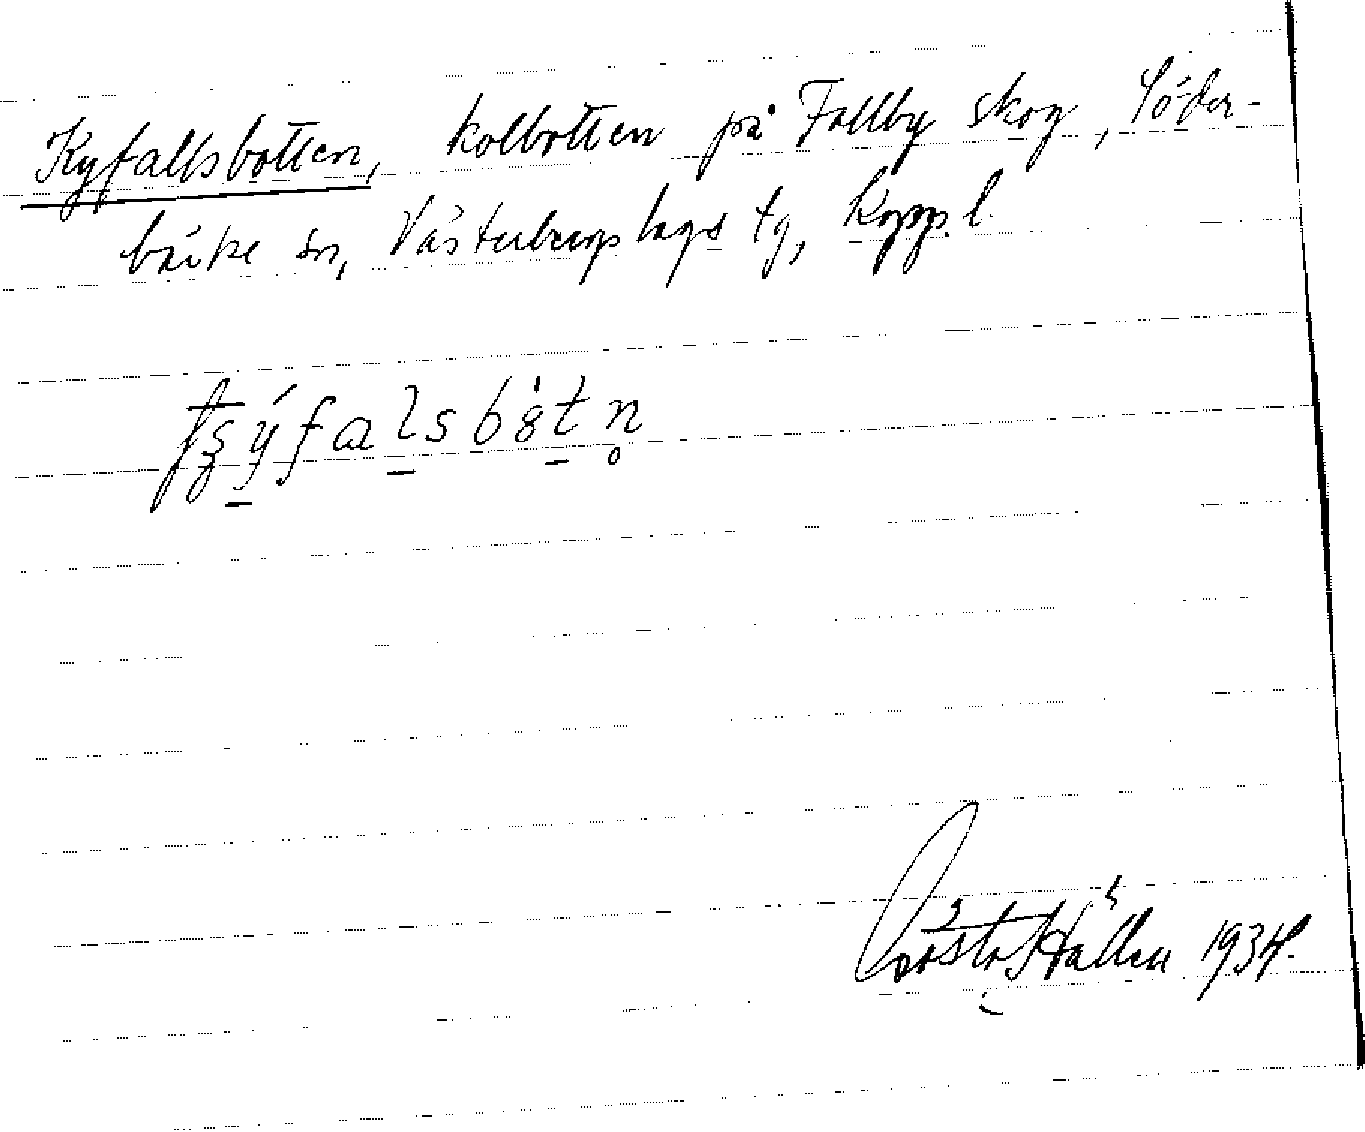 Kyfallsbotten, kolbotten på Fallby skog, Söder-
bärke sn, Västerbergslags tg, Kopp. l.
Gösta Hallén 1934.